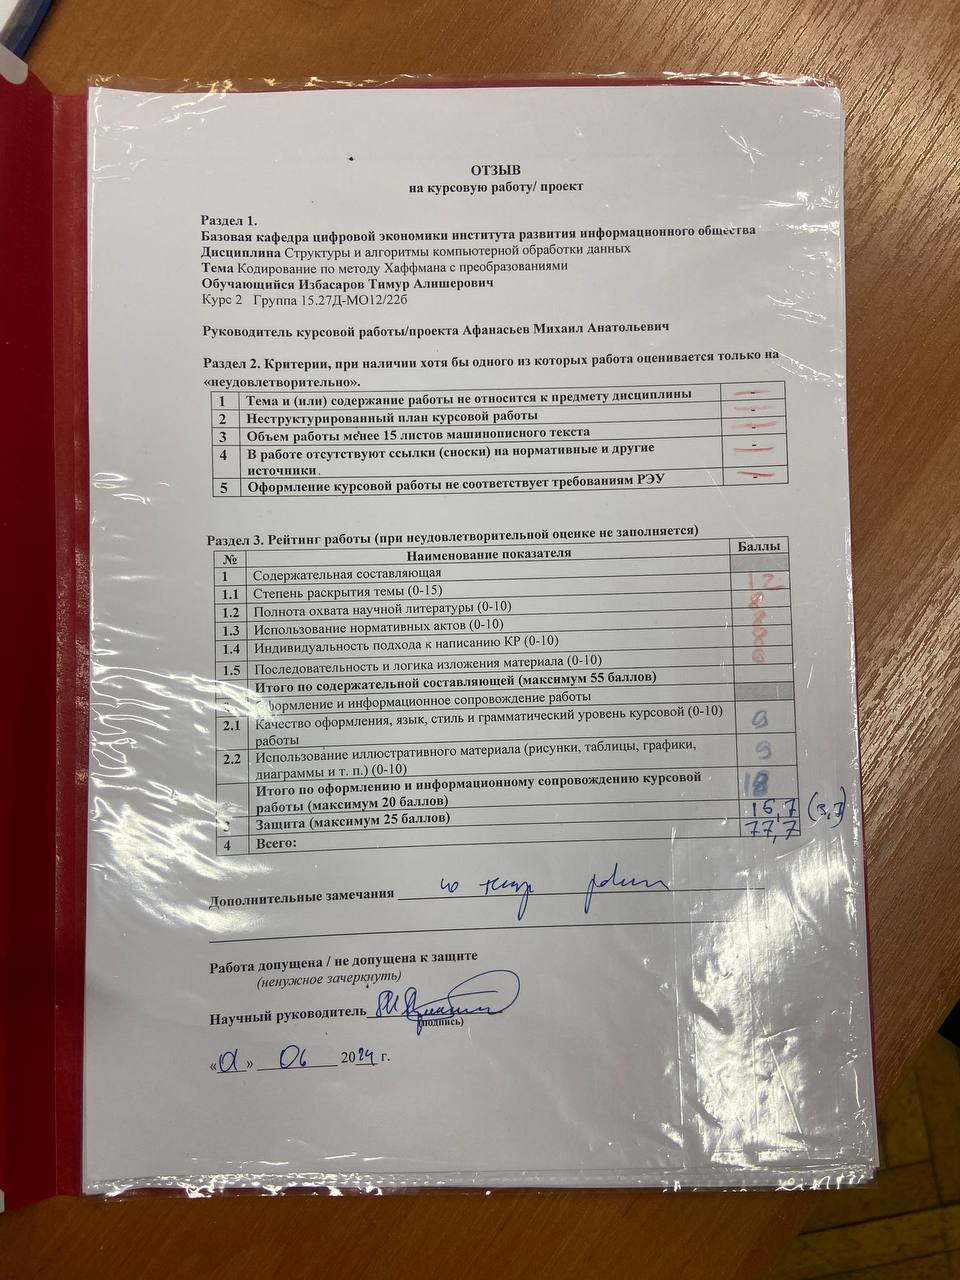 ОТЗЫВ
на курсовую работу/ проект
Раздел 1.
Базовая кафедра цифровой экономики института развития информационного общества
Дисциплина Структуры и алгоритмы компьютерной обработки данных
Тема Кодирование по методу Хаффмана с преобразованиями
Обучающийся Избасаров Тимур Алишерович
Курс 2 Группа 15.27Д-МО12/22б
Руководитель курсовой работы/проекта Афанасьев Михаил Анатольевич
Раздел 2. Критерии, при наличии хотя бы одного из которых работа оценивается только на
«неудовлетворительно».
1 Тема и (или) содержание работы не относится к предмету дисциплины -
2 Неструктурированный план курсовой работы -
3 Объем работы менее 15 листов машинописного текста -
4 В работе отсутствуют ссылки (сноски) на нормативные и другие -
источники.
5 Оформление курсовой работы не соответствует требованиям РЭУ -
Раздел 3. Рейтинг работы (при неудовлетворительной оценке не заполняется)
№ Наименование показателя Баллы
1 Содержательная составляющая
1.1 Степень раскрытия темы (0-15) 12
1.2 Полнота охвата научной литературы (0-10) 8
1.3 Использование нормативных актов (0-10) 8
1.4 Индивидуальность подхода к написанию КР (0-10) 8
1.5 Последовательность и логика изложения материала (0-10) 6
Итого по содержательной составляющей (максимум 55 баллов)
формление и информационное сопровождение работы
2.1 Качество оформления, язык, стиль и грамматический уровень курсовой (0-10) 9
работы
2.2 Использование иллюстративного материала (рисунки, таблицы, графики, 9
диаграммы и т. п.) (0-10)
Итого по оформлению и информационному сопровождению курсовой 18
работы (максимум 20 баллов)
3 Защита (максимум 25 баллов) 16,7 (3,7)
4 Всего: 77,7
Дополнительные замечания
Работа допущена / не допущена к защите
(ненужное зачеркнуть)
Научный руководитель
(подпись)
«01» 06 2024 г.